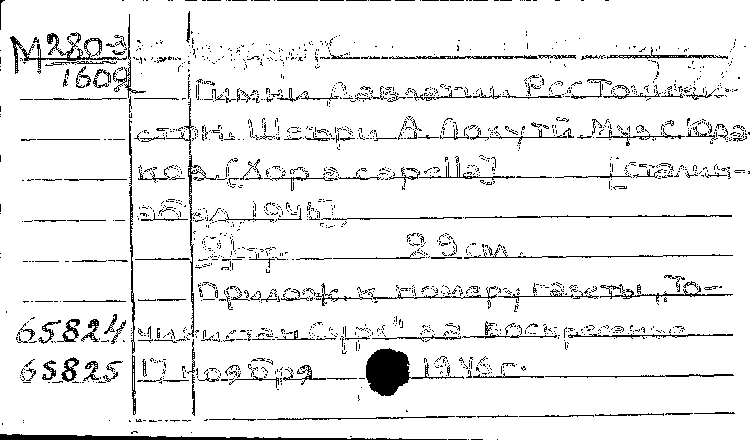 М 280-3
1609
Гимни Давлатии РССТоҷики-
стон. Шеъри А. Лохутӣ. Муз. С. Юда-
ков. [Хор a capella] [Сталин-
абад, 1946].
[2] стр. 29 см.
Прилож. к номеру газеты „То-
65824 чикистан Сурх" за воскресенье
65825 17 ноября 1946 г.